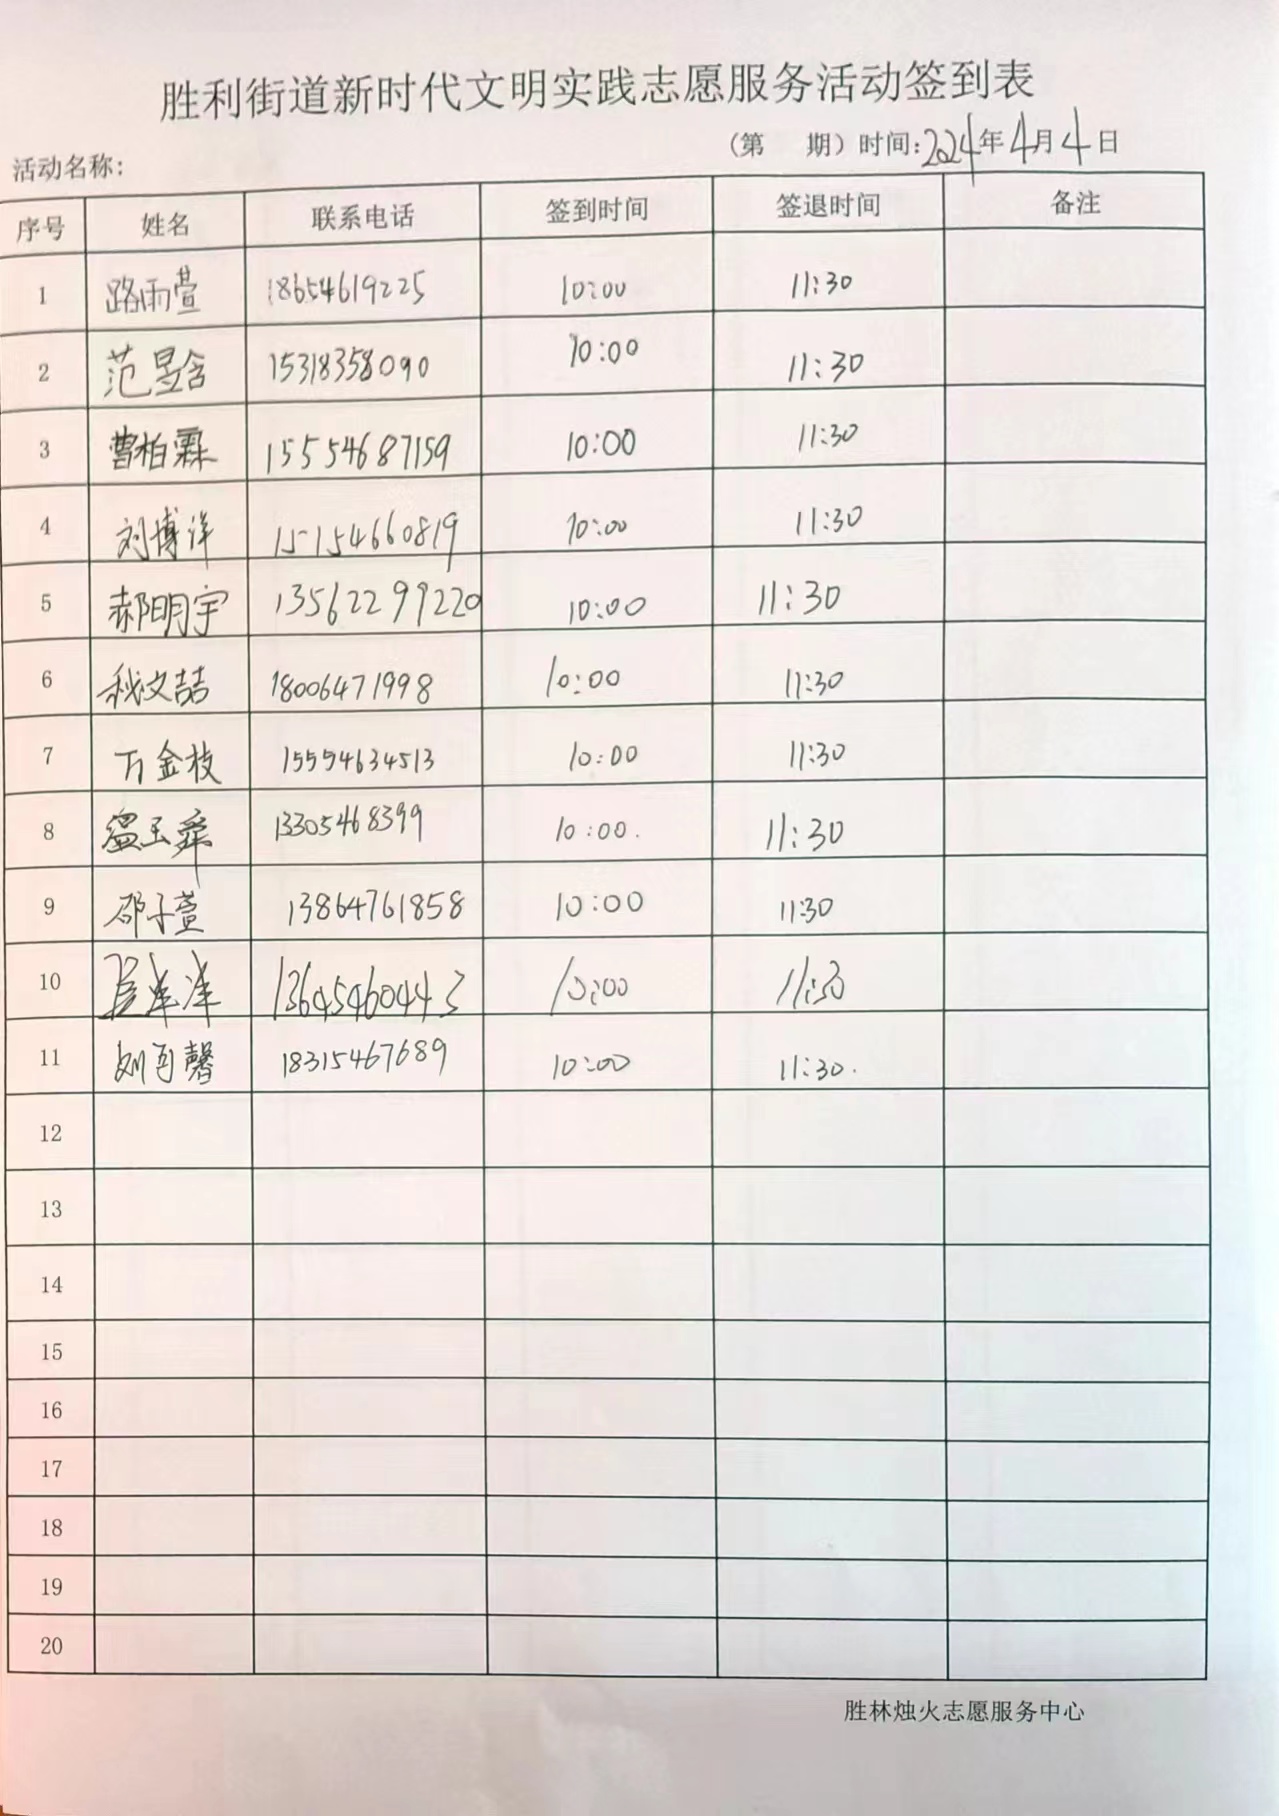 胜利街道新时代文明实践志愿服务活动签到表
活动名称: (第 期) 时间:2024年4月4日
序号 姓名 联系电话 签到时间 签退时间 备注
1 路雨萱 18654619225 10:00 11:30
2 范昱含 15318358090 10:00 11:30
3 曹柏霖 15554687159 10:00 11:30
4 刘博洋 15154660819 10:00 11:30
5 郝明宇 13562299220 10:00 11:30
6 文喆 18006471998 10:00 11:30
7 万金枝 15554634513 10:00 11:30
8 温玉舜 13305468399 10:00. 11:30
9 邵子萱 13864761858 10:00 11:30
10 13645460443 10:00 11:30
11 刘馨 18315467689 10:00 11:30.
12
13
14
15
16
17
18
19
20
胜林烛火志愿服务中心